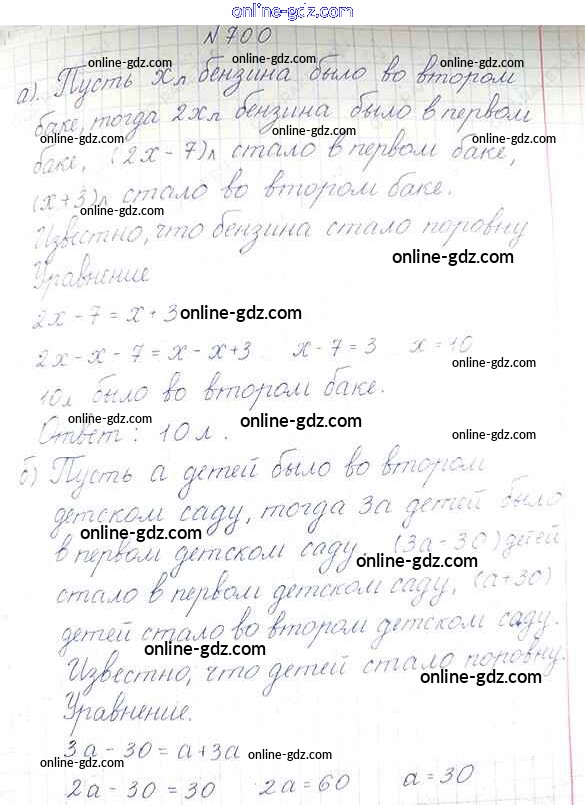 online-gdz.com
№700
online-gdz.com online-gdz.com
а). Пусть хл бензина было во втором
online-gdz.com online-gdz.com
баке, тогда 2хл бензина было в первом
online-gdz.com online-gdz.com
баке, (2х-7)л стало в первом баке,
online-gdz.com
(х+3)л стало во втором баке.
online-gdz.com
Известно, что бензина стало поровну
Уравнение
online-gdz.com
2х-7=х+3 online-gdz.com
2х-х-7=х-х+3 х-7=3 х=10
online-gdz.com
10л было во втором баке.
online-gdz.com online-gdz.com
Ответ: 10л.
online-gdz.com
б) Пусть а детей было во втором
online-gdz.com
детском саду, тогда 3а детей было
online-gdz.com
в первом детском саду, (3а-30)детей
online-gdz.com
стало в первом детском саду, (а+30)
online-gdz.com
детей стало во втором детском саду.
online-gdz.com
Известно, что детей стало поровну.
online-gdz.com
Уравнение.
3а-30=а+3а
online-gdz.com online-gdz.com
2а-30=30 2а=60 а=30